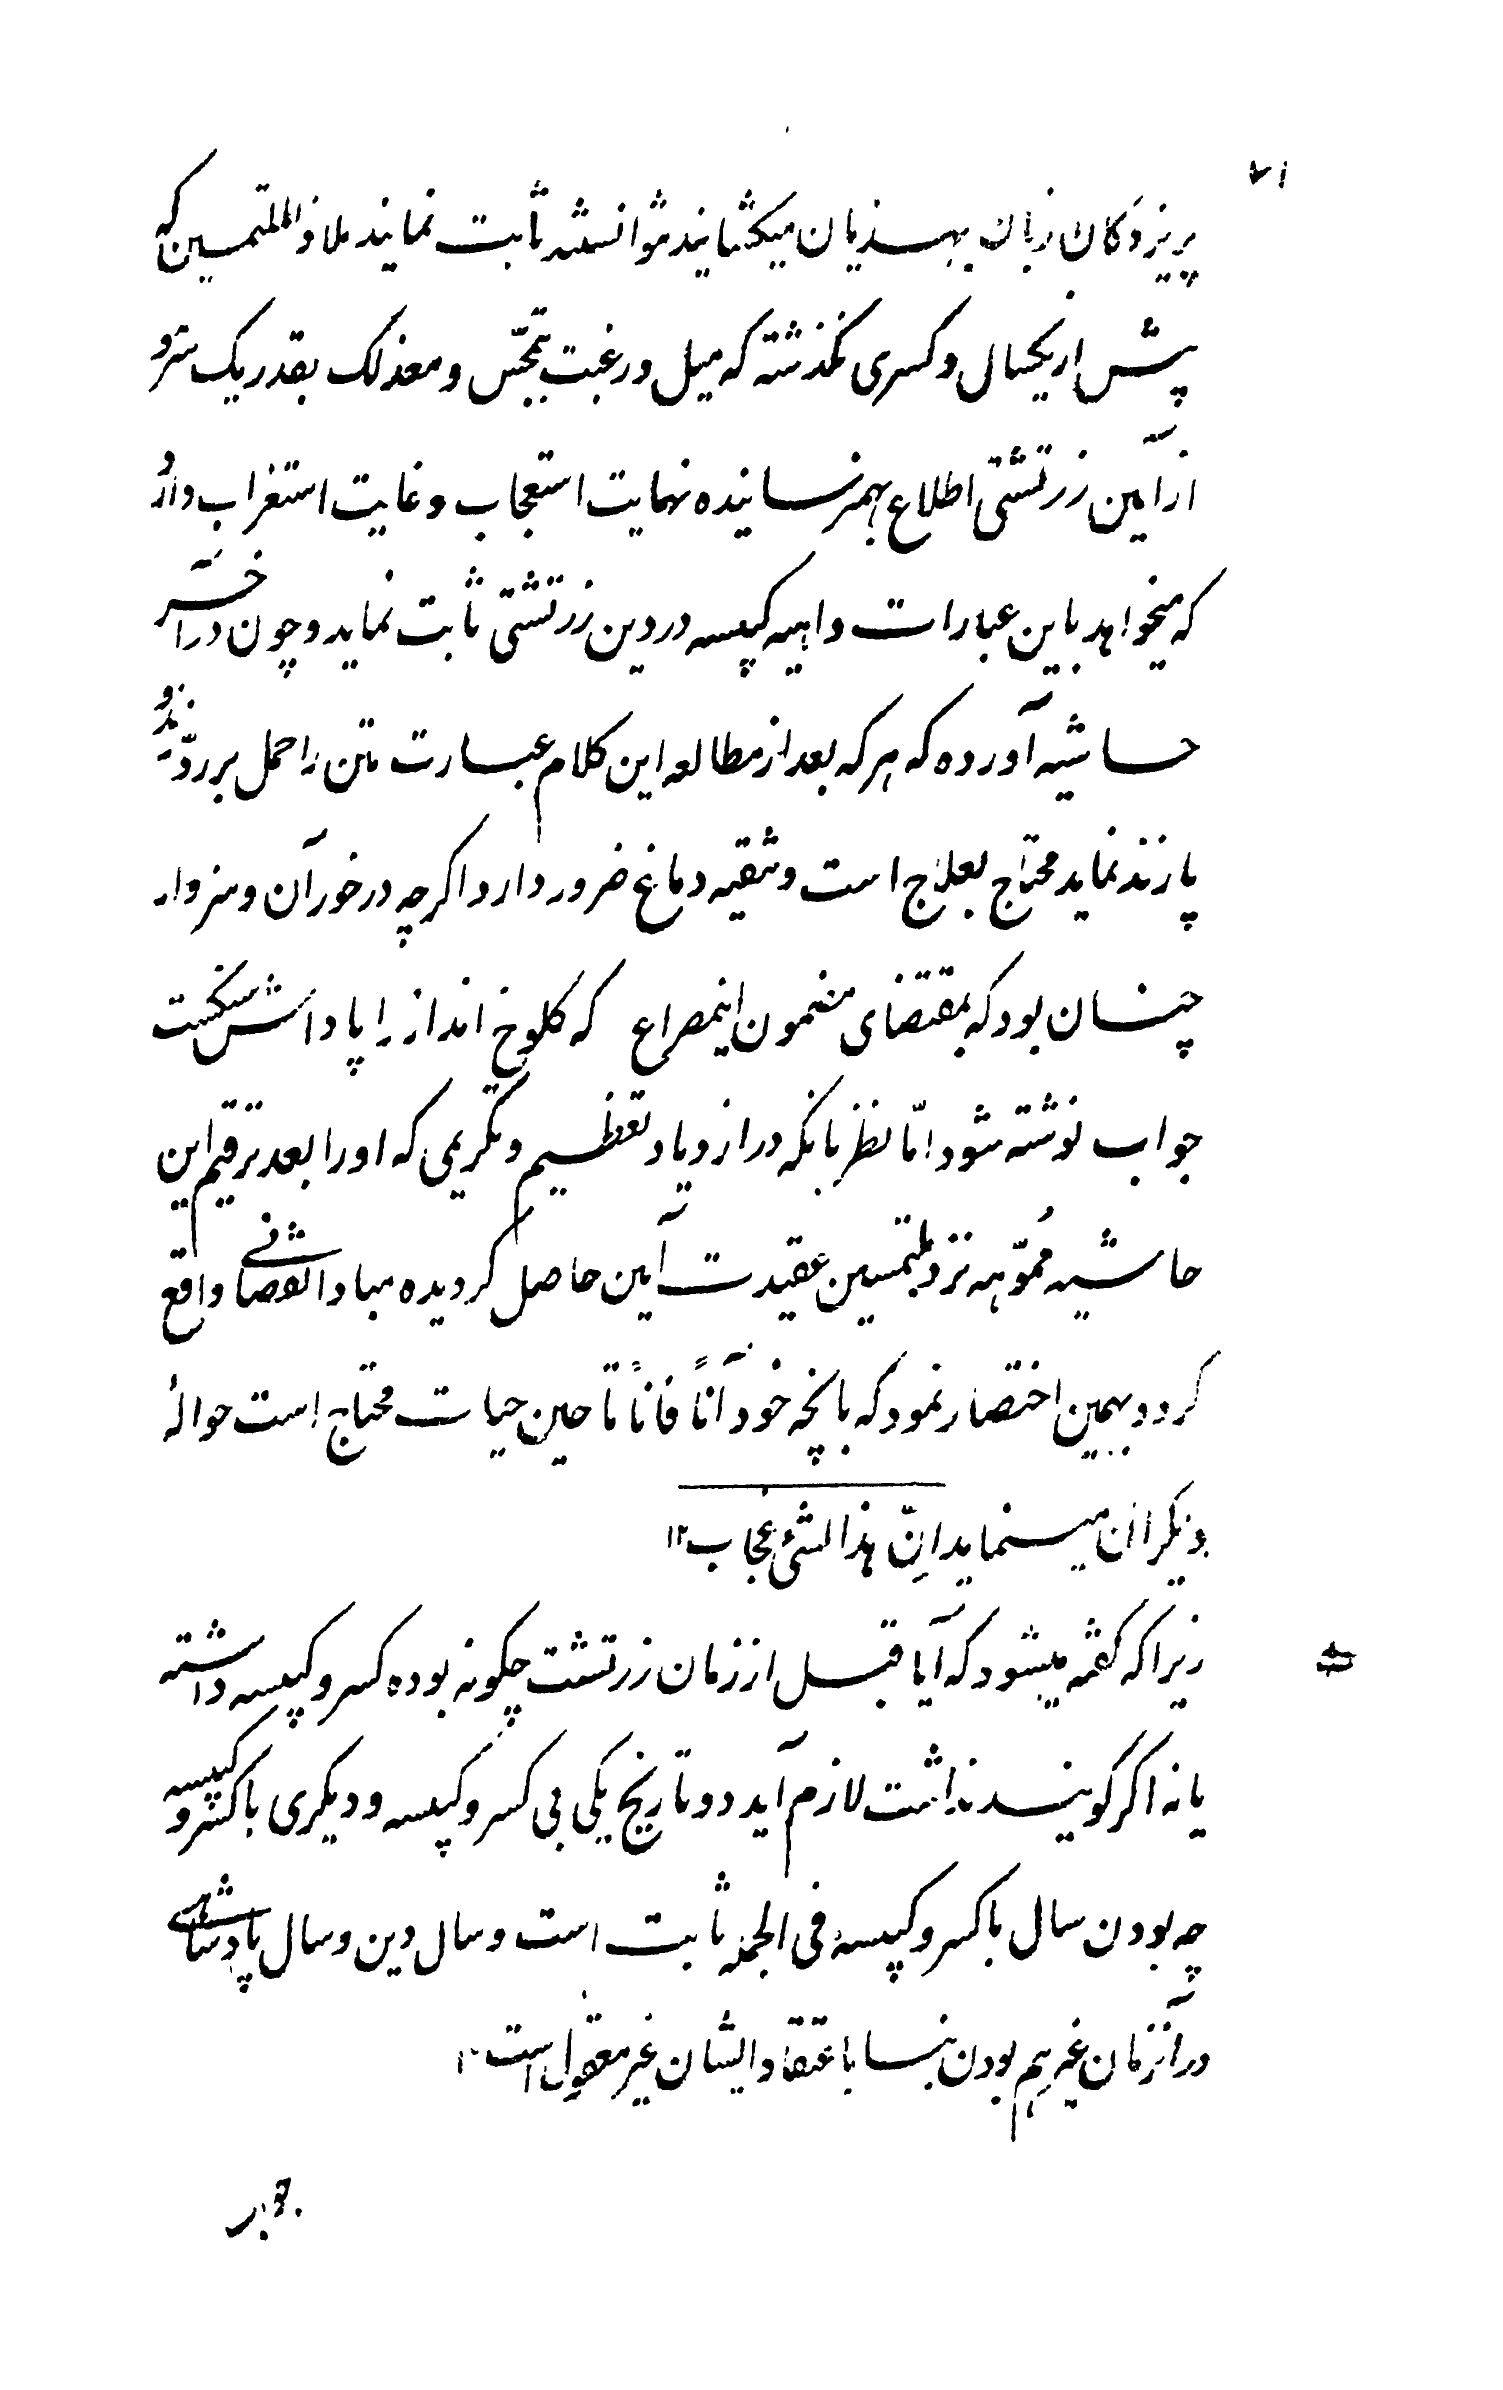 ۷۱
پریزدکان زبان بهذیان میکشایند نتوانسته ثابت نمایند ملاذ الملتمسین که
پیش از یکسال و کسری نگذشته که میل و رغبت تجسّس و معذلک بقدر یک سرمو
از آیین زرتشتی اطلاع بهم نرسانیده نهایت استعجاب و غایت استغراب دارد
که میخواهد باین عبارات واهیه کبیسه در دین زرتشتی ثابت نماید و چون در آخر
حاشیه آورده که هر که بعد از مطالعه این کلام عبارت متن را حمل بر ردّ زند و
پازند نماید محتاج بعلاج است و تنقیه دماغ ضرور دارد اکرچه در خور آن و سزوار
چنان بود که بمقتضای مضمون اینمصراع که کلوخ انداز را پاداش سنکست
جواب نوشته شود امّا نظر بانکه در ازدیاد تعظیم و تکریمی که او را بعد ترقیم این
حاشیه مُموّهه نزد ملتمسین عقیدت آیین حاصل کردیده مبادا نقصانی واقع
کردد بهمین اختصار نمود که بانچه خود آناً فاناً تا حین حیات محتاج است حوالهٔ
دیکران مینماید انّ هذا لشئ عجاب ۱۲
زیرا که کفته میشود که آیا قبل از زمان زرتشت چکونه بوده کسر و کبیسه داشته
یا نه اکر کویند نداشت لازم آید دو تاریخ یکی بی کسر و کبیسه و دیکری با کسر و کبیسه
چه بودن سال با کسر و کبیسهٔ فی الجمله ثابت است و سال دین و سال پادشاهی
در آنزمان غیر هم بودن بنا باعتقاد ایشان غیر معقول است ۱۲